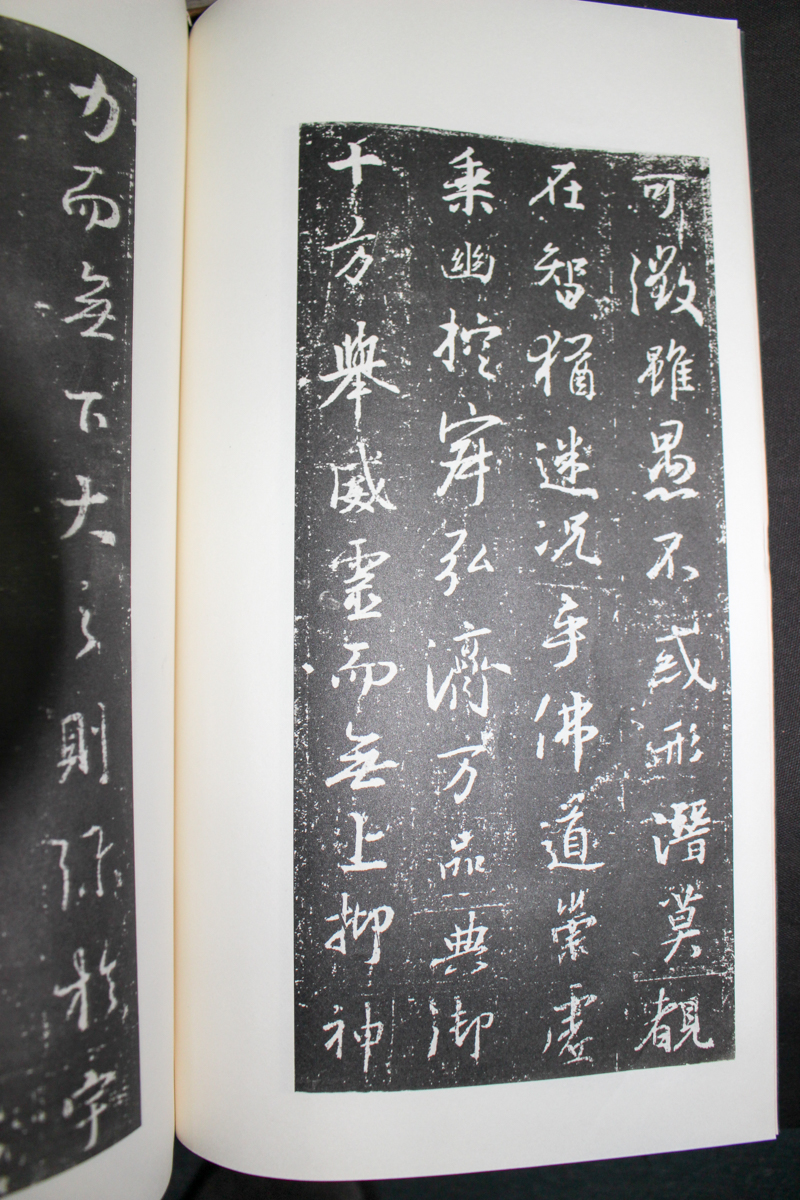 可徵雖愚不惑形潛莫覩
在智猶迷况乎佛道崇虛
乘幽控寂弘濟万品典御
十方舉威靈而無上抑神
力而無下大之則弥於宇